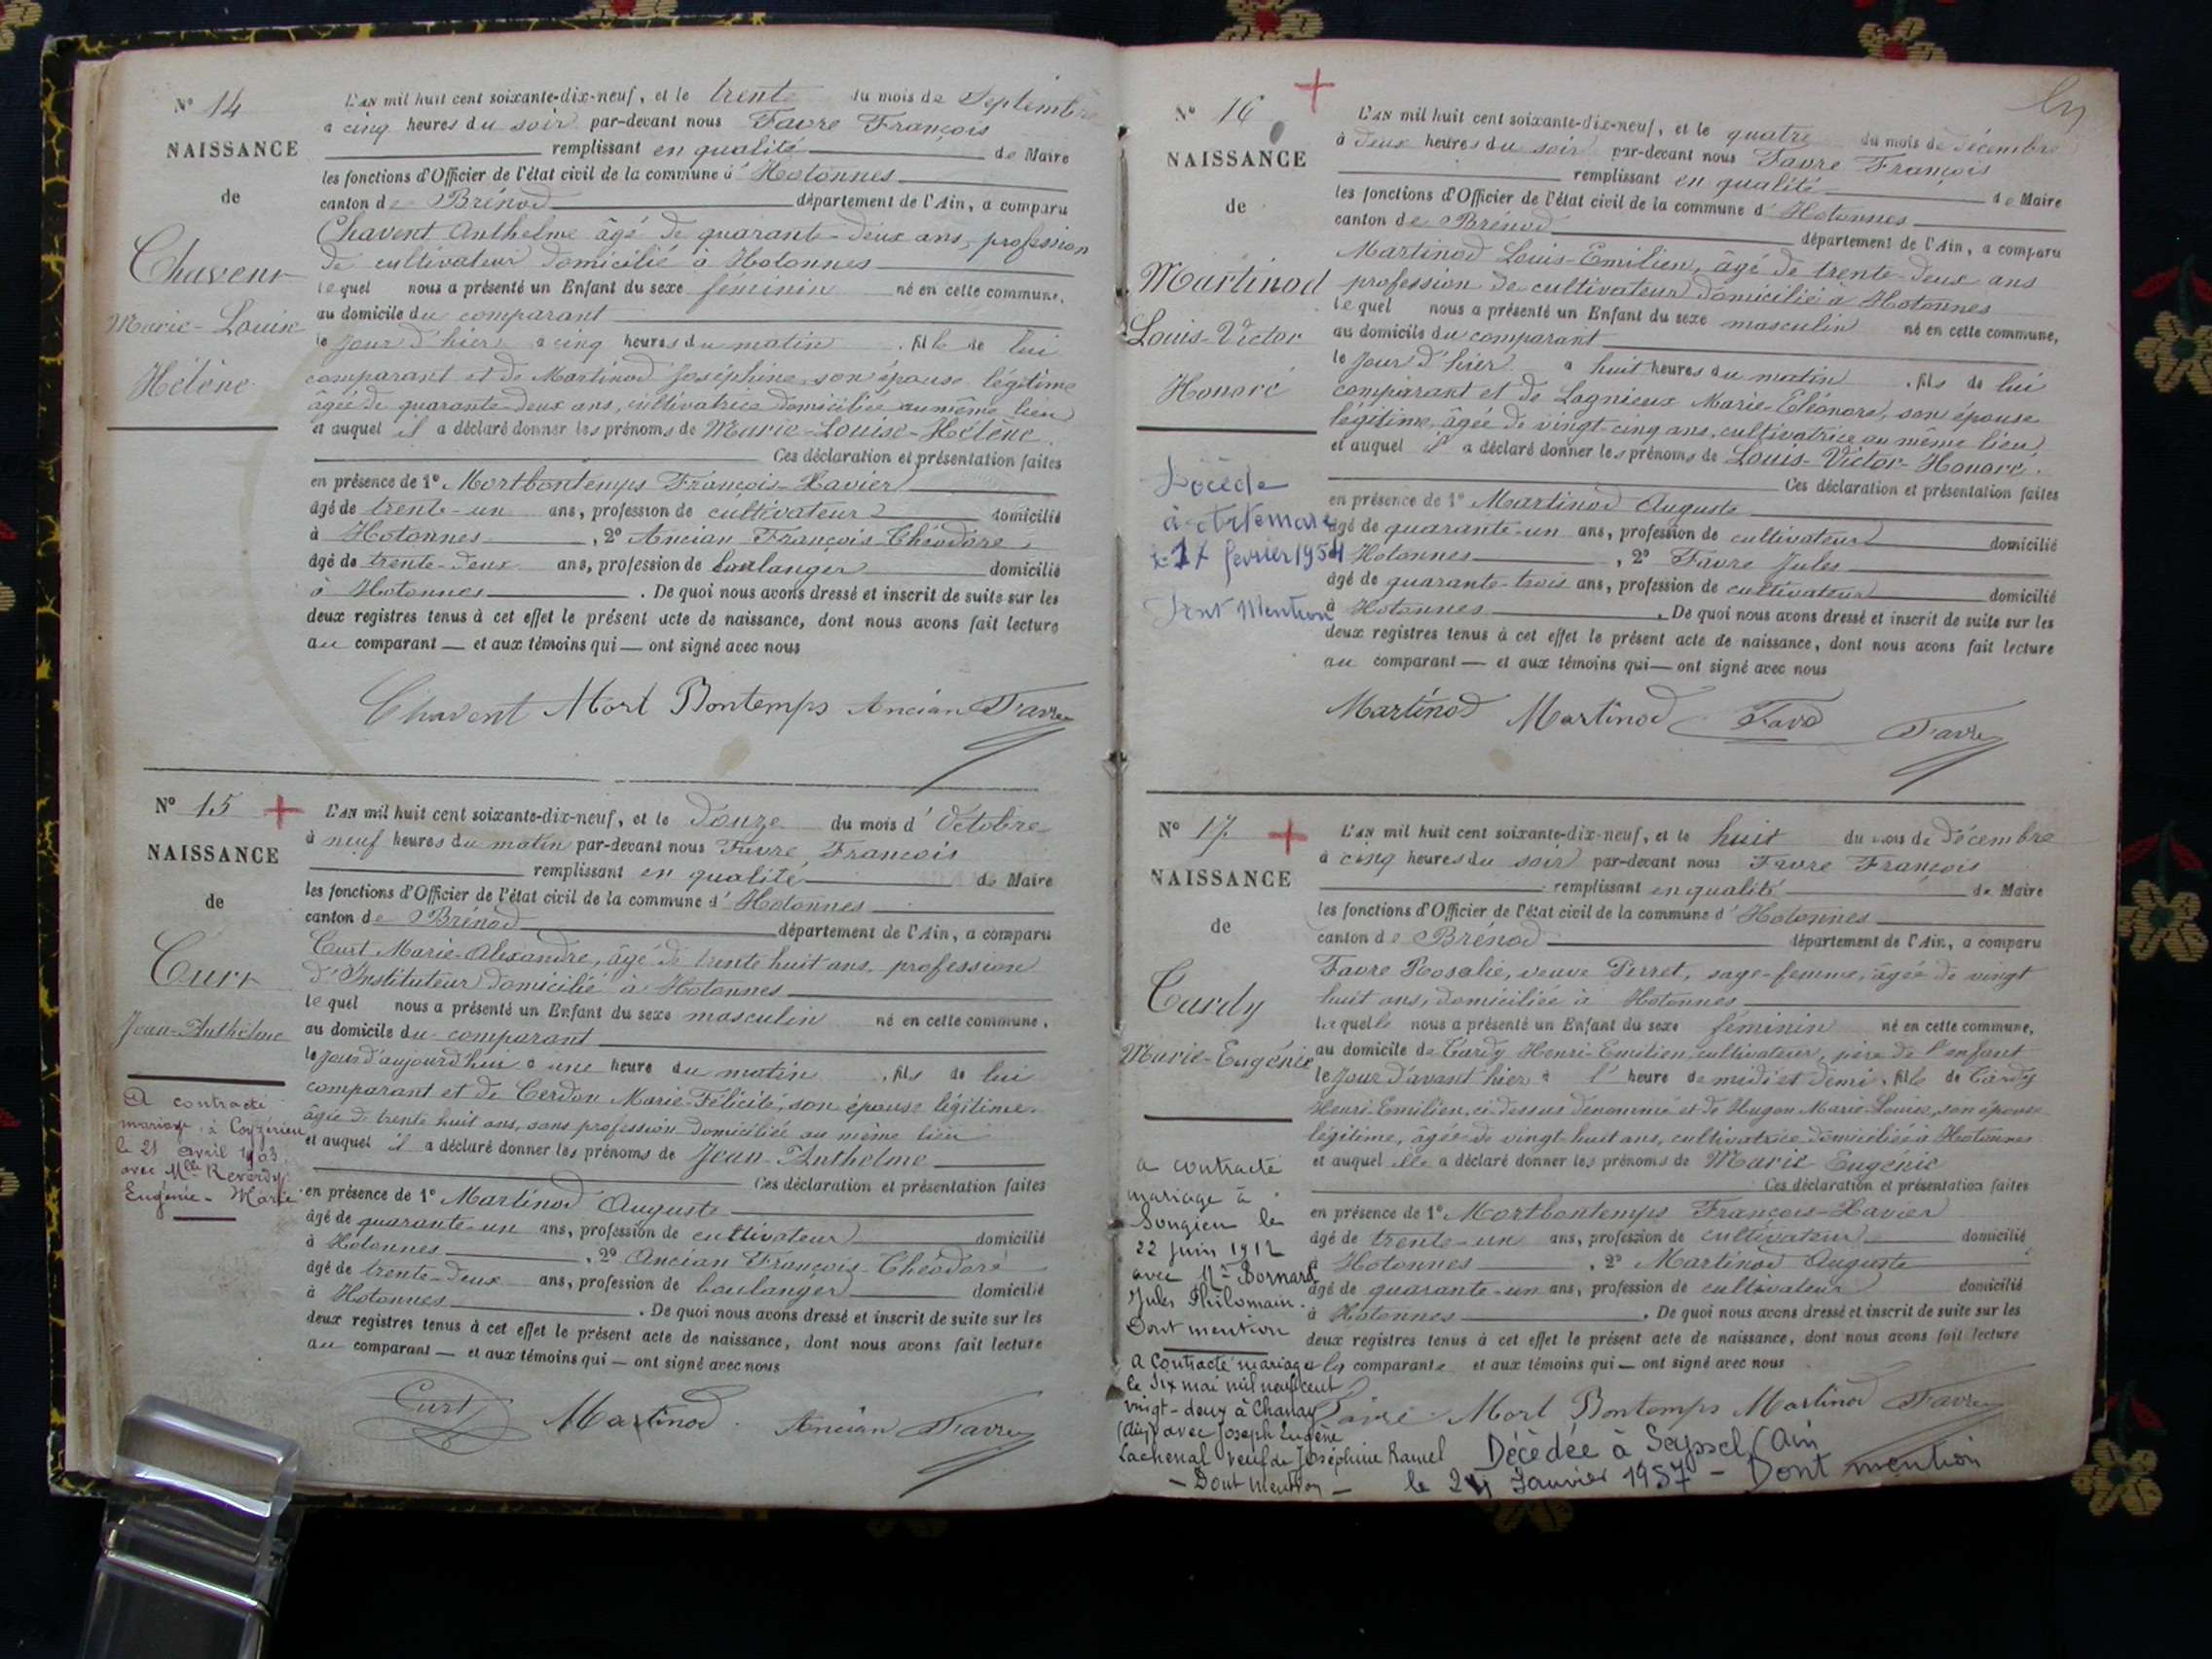 N° 14
NAISSANCE
de
Chavent
Marie-Louise
Hélène
L'AN mil huit cent soixante-dix-neuf, et le trente du mois de Septembre
à cinq heures du soir par-devant nous Favre François
remplissant en qualité de Maire
les fonctions d'Officier de l'état civil de la commune d'Hotonnes
canton de Brénod département de l'Ain, a comparu
Chavent Anthelme âgé de quarante-deux ans, profession
de cultivateur domicilié à Hotonnes
lequel nous a présenté un Enfant du sexe féminin né en cette commune,
au domicile du comparant
le jour d'hier à cinq heures du matin, fille de lui
comparant et de Martinod Joséphine son épouse légitime
âgée de quarante-deux ans, cultivatrice domiciliée au même lieu
et auquel il a déclaré donner les prénoms de Marie-Louise-Hélène.
Ces déclaration et présentation faites
en présence de 1° Mortbontemps François-Xavier
âgé de trente-un ans, profession de cultivateur domicilié
à Hotonnes, 2° Ancian François-Théodore
âgé de trente-deux ans, profession de boulanger domicilié
à Hotonnes. De quoi nous avons dressé et inscrit de suite sur les
deux registres tenus à cet effet le présent acte de naissance, dont nous avons fait lecture
au comparant — et aux témoins qui — ont signé avec nous
Chavent Mort Bontemps Ancian Favre
N° 15
NAISSANCE
de
Curt
Jean-Anthelme
A contracté
mariage à Ceyzérieu
le 21 avril 1903
avec Mlle Reverdy
Eugénie-Marie
L'AN mil huit cent soixante-dix-neuf, et le douze du mois d'Octobre
à neuf heures du matin par-devant nous Favre François
remplissant en qualité de Maire
les fonctions d'Officier de l'état civil de la commune d'Hotonnes
canton de Brénod département de l'Ain, a comparu
Curt Marie-Alexandre, âgé de trente huit ans, profession
d'Instituteur domicilié à Hotonnes
lequel nous a présenté un Enfant du sexe masculin né en cette commune,
au domicile du comparant
le jour d'aujourd'hui à une heure du matin, fils de lui
comparant et de Cerdon Marie-Félicité, son épouse légitime.
âgée de trente huit ans, sans profession domiciliée au même lieu
et auquel il a déclaré donner les prénoms de Jean-Anthelme
Ces déclaration et présentation faites
en présence de 1° Martinod Auguste
âgé de quarante-un ans, profession de cultivateur domicilié
à Hotonnes, 2° Ancian François-Théodore
âgé de trente-deux ans, profession de boulanger domicilié
à Hotonnes. De quoi nous avons dressé et inscrit de suite sur les
deux registres tenus à cet effet le présent acte de naissance, dont nous avons fait lecture
au comparant — et aux témoins qui — ont signé avec nous
Curt Martinod Ancian Favre
N° 16
NAISSANCE
de
Martinod
Louis-Victor
Honoré
Décédé
à Artemare
le 17 février 1954
Dont Mention
L'AN mil huit cent soixante-dix-neuf, et le quatre du mois de décembre
à deux heures du soir par-devant nous Favre François
remplissant en qualité de Maire
les fonctions d'Officier de l'état civil de la commune d'Hotonnes
canton de Brénod département de l'Ain, a comparu
Martinod Louis-Emilien, âgé de trente-deux ans
profession de cultivateur domicilié à Hotonnes
lequel nous a présenté un Enfant du sexe masculin né en cette commune,
au domicile du comparant
le jour d'hier à huit heures du matin, fils de lui
comparant et de Lagnieux Marie-Eléonore, son épouse
légitime, âgée de vingt-cinq ans, cultivatrice au même lieu
et auquel il a déclaré donner les prénoms de Louis-Victor-Honoré.
Ces déclaration et présentation faites
en présence de 1° Martinod Auguste
âgé de quarante-un ans, profession de cultivateur domicilié
à Hotonnes, 2° Favre Jules
âgé de quarante-trois ans, profession de cultivateur domicilié
à Hotonnes. De quoi nous avons dressé et inscrit de suite sur les
deux registres tenus à cet effet le présent acte de naissance, dont nous avons fait lecture
au comparant — et aux témoins qui — ont signé avec nous
Martinod Martinod Favre Favre
N° 17
NAISSANCE
de
Cardy
Marie-Eugénie
a contracté
mariage à
Songieu le
22 juin 1912
avec Mr Bornard
Jules Philomain.
Dont mention
A Contracté mariage
le six mai mil neuf cent
vingt-deux à Chanay
(Ain) avec Joseph Eugène
Lachenal veuf de Joséphine Ramel
— Dont mention —
L'AN mil huit cent soixante-dix-neuf, et le huit du mois de décembre
à cinq heures du soir par-devant nous Favre François
remplissant en qualité de Maire
les fonctions d'Officier de l'état civil de la commune d'Hotonnes
canton de Brénod département de l'Ain, a comparu
Favre Rosalie, veuve Perret, sage-femme, âgée de vingt
huit ans, domiciliée à Hotonnes
laquelle nous a présenté un Enfant du sexe féminin né en cette commune,
au domicile de Cardy Henri-Emilien, cultivateur, père de l'enfant
le jour d'avant hier à l' heure de midi et demi, fille de Cardy
Henri-Emilien, ci-dessus dénommé et de Hugon Marie-Louise, son épouse
légitime, âgée de vingt-huit ans, cultivatrice domiciliée à Hotonnes
et auquel elle a déclaré donner les prénoms de Marie-Eugénie
Ces déclaration et présentation faites
en présence de 1° Mortbontemps François-Xavier
âgé de trente-un ans, profession de cultivateur domicilié
à Hotonnes, 2° Martinod Auguste
âgé de quarante-un ans, profession de cultivateur domicilié
à Hotonnes. De quoi nous avons dressé et inscrit de suite sur les
deux registres tenus à cet effet le présent acte de naissance, dont nous avons fait lecture
à la comparante et aux témoins qui — ont signé avec nous
Favre Mort Bontemps Martinod Favre
Décédée à Seyssel (Ain
le 24 Janvier 1957 — Dont mention